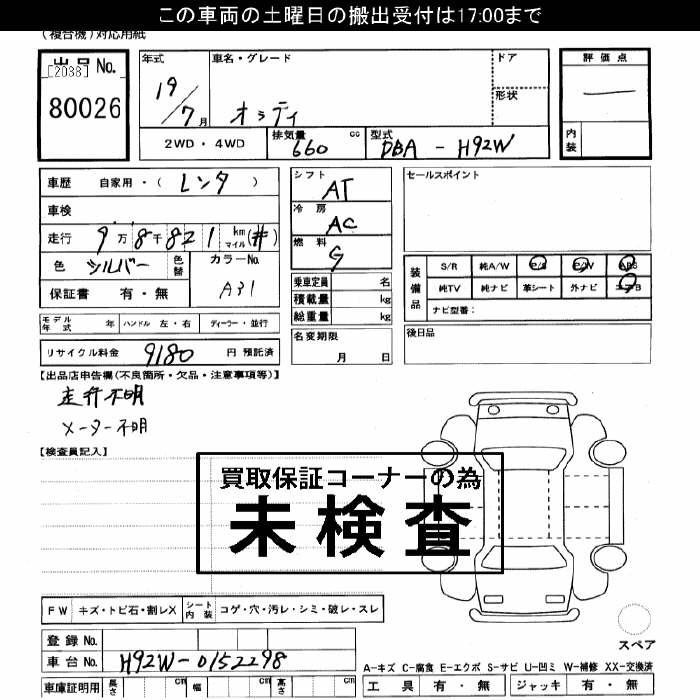 この車両の土曜日の搬出受付は17:00まで
(複合機)対応用紙
出品No.
[2038]
80026
年式
19/7月
車名・グレード
オッティ
ドア
形状
評価点
内装
2WD・4WD
排気量 660 cc
型式 DBA-H92W
車歴 自家用・(レンタ)
車検
走行 9万8千821km マイル(#)
色 シルバー 色替 カラーNo. A31
保証書 有・無
シフト AT
冷房 AC
燃料 G
乗車定員 名
積載量 kg
総重量 kg
セールスポイント
装備品
S/R 純A/W P/S P/W ABS
純TV 純ナビ 革シート 外ナビ エアB
ナビ型番:
モデル年式 年 ハンドル 左・右 ディーラー・並行
リサイクル料金 9180 円 預託済
名変期限
月 日
後日品
【出品店申告欄(不良箇所・欠品・注意事項等)】
走行不明
メーター不明
【検査員記入】
買取保証コーナーの為
未検査
FW キズ・トビ石・割レX シート内装 コゲ・穴・汚レ・シミ・破レ・スレ
スペア
登録No.
車台No. H92W-0152298
A-キズ C-腐食 E-エクボ S-サビ U-凹ミ W-補修 XX-交換済
車庫証明用 長さ cm 幅 cm 高さ cm
工具 有・無 ジャッキ 有・無